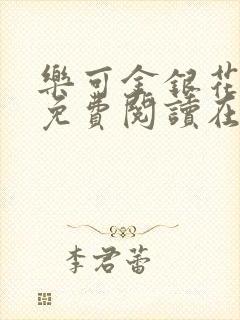 樂可金銀花
免費閱讀在
李君蕾